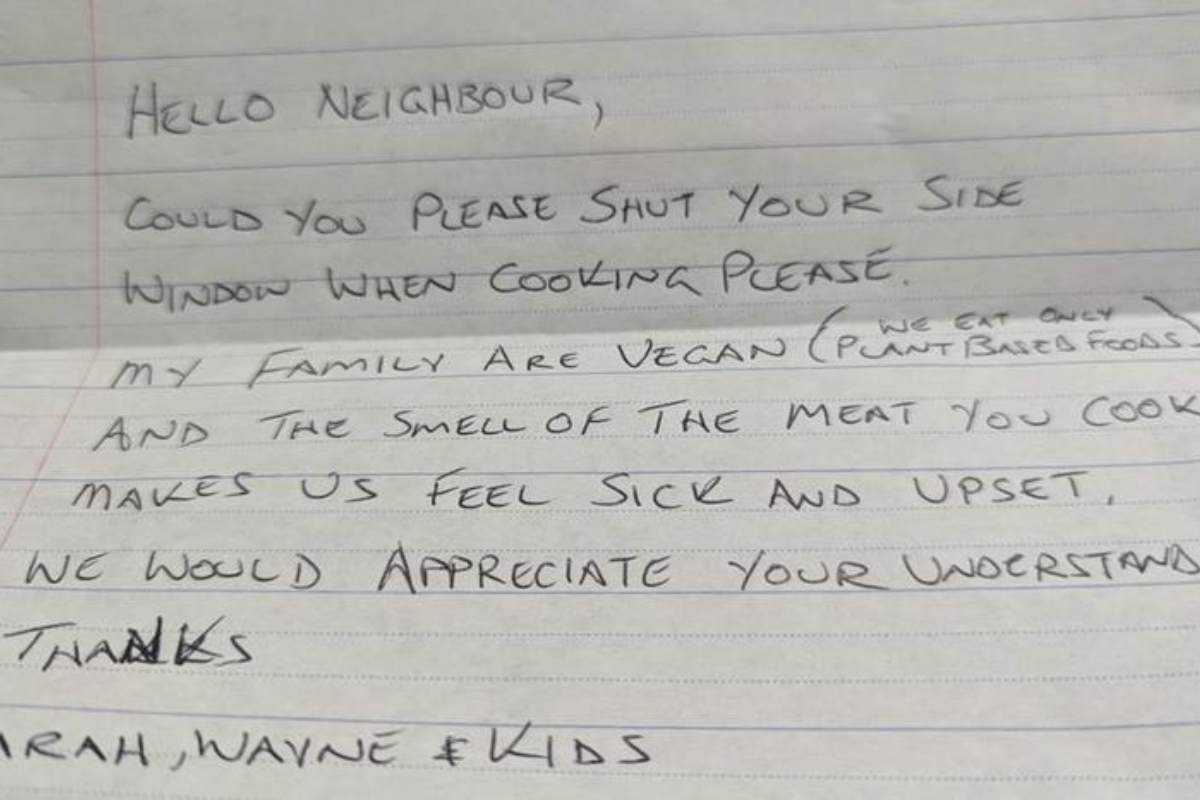 HELLO NEIGHBOUR,
COULD YOU PLEASE SHUT YOUR SIDE
WINDOW WHEN COOKING PLEASE.
MY FAMILY ARE VEGAN (WE EAT ONLY PLANT BASED FOODS)
AND THE SMELL OF THE MEAT YOU COOK
MAKES US FEEL SICK AND UPSET.
WE WOULD APPRECIATE YOUR UNDERSTAND
THANKS
ARAH, WAYNE & KIDS